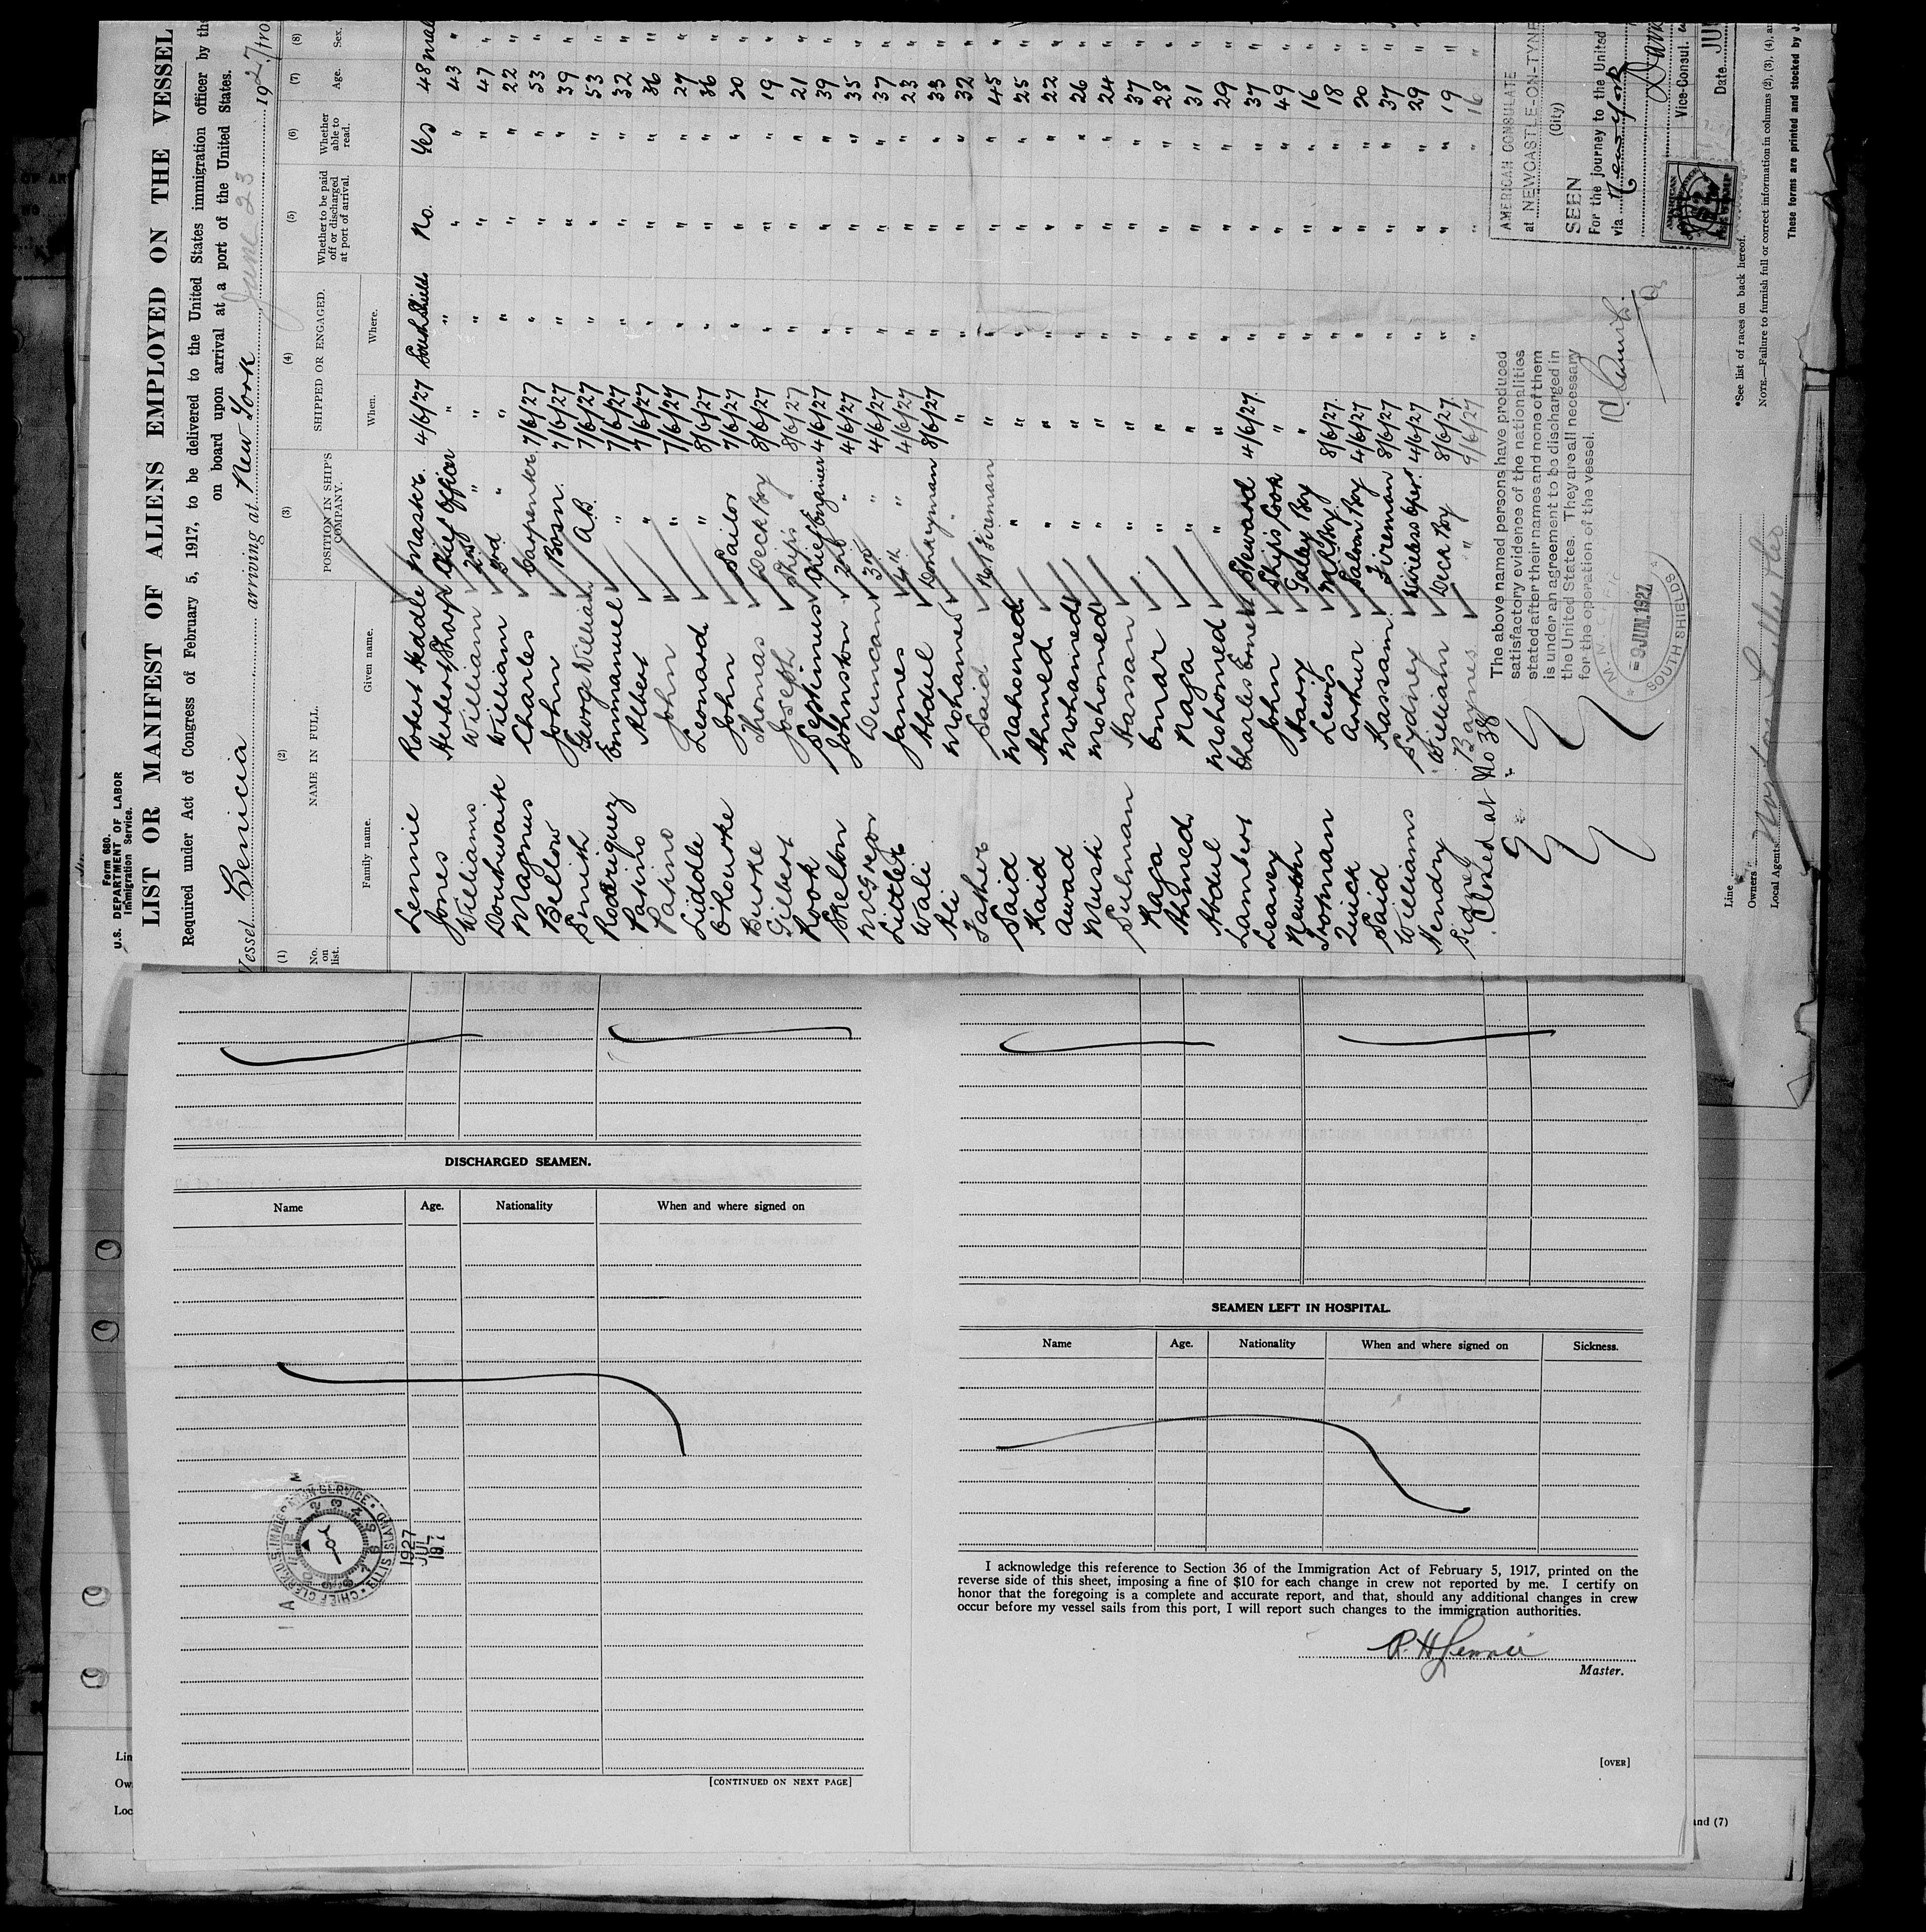 Form 680.
U.S. DEPARTMENT OF LABOR
Immigration Service.
LIST OR MANIFEST OF ALIENS EMPLOYED ON THE VESSEL
Required under Act of Congress of February 5, 1917, to be delivered to the United States immigration officer by the
on board upon arrival at a port of the United States.
Vessel Benicia arriving at New York June 23 1927 fro
(1) (2) (3) (4) (5) (6) (7) (8)
No. on list. NAME IN FULL. POSITION IN SHIP'S COMPANY. SHIPPED OR ENGAGED. Whether to be paid off or discharged at port of arrival. Whether able to read. Age. Sex.
Family name. Given name. When. Where.
Lennie Robert Heddle Master. 4/6/27 South Shields No. Yes 48 male
Jones Herbert Sharp Chief Officer " " " " 43 "
Williams William 2nd " " " " " 47 "
Douthwaite William 3rd " " " " " 22 "
Magnus Charles Carpenter 7/6/27 " " " 53 "
Bellow John Bosn. 7/6/27 " " " 39 "
Smith George William A.B. 7/6/27 " " " 53 "
Rodriguez Emmanuel " 7/6/27 " " " 32 "
Patino Albert " 7/6/27 " " " 36 "
Patino John " 7/6/27 " " " 27 "
Liddle Leonard " 8/6/27 " " " 36 "
O'Rourke John Sailor 7/6/27 " " " 20 "
Burke Thomas Deck Boy 8/6/27 " " " 19 "
Gilbert Joseph Ship's 8/6/27 " " " 21 "
Rook Septimus Chief Engineer 4/6/27 " " " 39 "
Skelton Johnston 2nd " 4/6/27 " " " 35 "
McGregor Duncan 3rd " 4/6/27 " " " 37 "
Littler James 4th " 4/6/27 " " " 23 "
Wali Abdul Donkeyman 8/6/27 " " " 33 "
Ali Mohamed " " " " " 32 "
Taher Said Fireman " " " " 45 "
Said Mahomed " " " " " 25 "
Kaid Ahmed " " " " " 22 "
Awad Mohamed " " " " " 26 "
Musli Mohomed " " " " " 24 "
Sulman Hassan " " " " " 37 "
Kaga Omar " " " " " 28 "
Ahmed Naga " " " " " 31 "
Abdul Mohomed " " " " " 29 "
Lambert Charles Ernest Steward 4/6/27. " " " 37 "
Leavey John Ships Cook " " " " 49 "
Newton Harry Galley Boy " " " " 16 "
Lewis 8/6/27. " " " 18 "
Quick Arthur Saloon Boy 4/6/27 " " " 20 "
Said Kassam Fireman 8/6/27 " " " 37 "
Williams Sydney Wireless Oper. 4/6/27 " " " 29 "
Hendry William Deck Boy 8/6/27. " " " 19 "
Signey Baynes " " 9/6/27 " " " 16 "
Closed at No 38
The above named persons have produced
satisfactory evidence of the nationalities
stated after their names and none of them
is under an agreement to be discharged in
the United States. They are all necessary
for the operation of the vessel.
-9 JUN. 1927
SOUTH SHIELDS
AMERICAN CONSULATE
at NEWCASTLE-ON-TYNE
(City)
SEEN
For the journey to the United
via New York
Vice-Consul.
Date JU
AMERICAN
$2
Line
Owners
Local Agents
*See list of races on back hereof.
NOTE.—Failure to furnish full or correct information in columns (2), (3), (4), a
These forms are printed and stocked by J.
DISCHARGED SEAMEN.
Name Age. Nationality When and where signed on
CHIEF CLERK U.S. IMMIGRATION SERVICE ELLIS ISLAND
1927
JUL
A M
[CONTINUED ON NEXT PAGE]
SEAMEN LEFT IN HOSPITAL.
Name Age. Nationality When and where signed on Sickness.
I acknowledge this reference to Section 36 of the Immigration Act of February 5, 1917, printed on the
reverse side of this sheet, imposing a fine of $10 for each change in crew not reported by me. I certify on
honor that the foregoing is a complete and accurate report, and that, should any additional changes in crew
occur before my vessel sails from this port, I will report such changes to the immigration authorities.
R. H. Lennie
Master.
[OVER]
Lin
Ow
Loc
and (7)